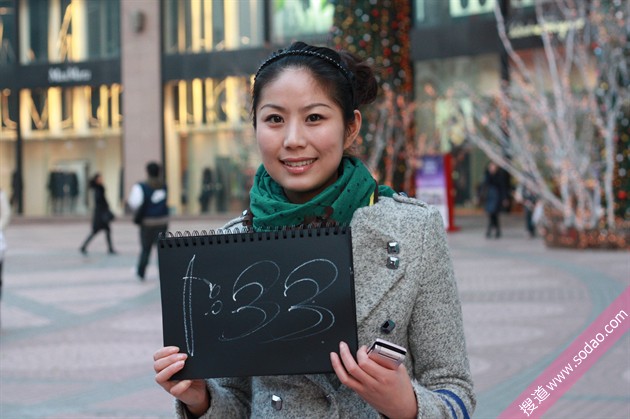 MaxMara
1:33
搜道www.sodao.com